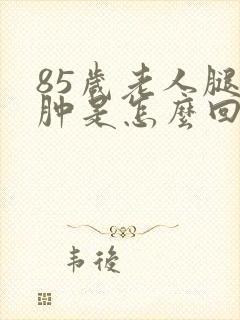 85歲老人腿
肿是怎麼回
韦後